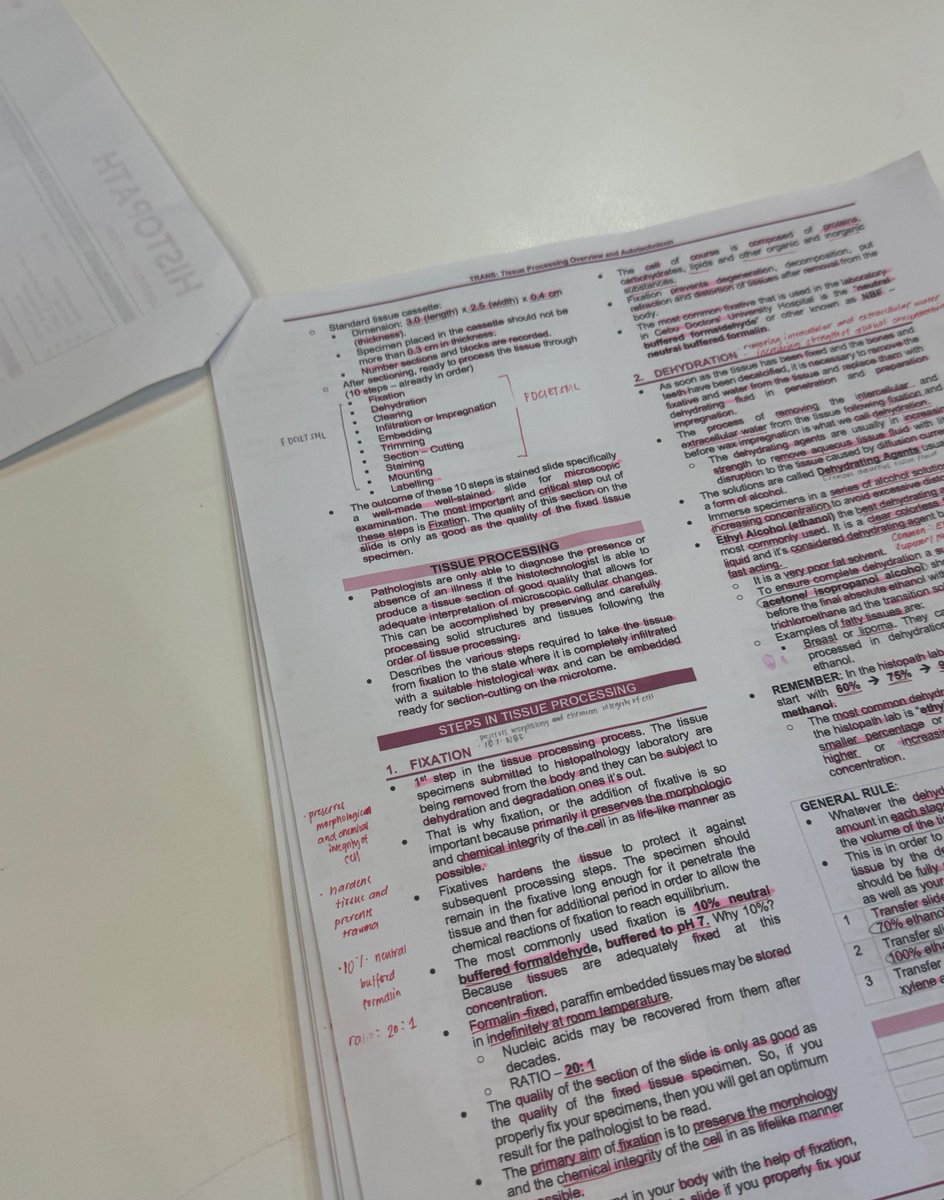 HISTOPATH
TRANS: Tissue Processing Overview and Autotechnicon
○ Standard tissue cassette:
▪ Dimension: 3.0 (length) x 2.5 (width) x 0.4 cm
(thickness).
▪ Specimen placed in the cassette should not be
more than 0.3 cm in thickness.
▪ Number sections and blocks are recorded.
○ After sectioning, ready to process the tissue through
(10 steps – already in order)
▪ Fixation
▪ Dehydration
▪ Clearing
▪ Infiltration or Impregnation
▪ Embedding
▪ Trimming
▪ Section – Cutting
▪ Staining
▪ Mounting
▪ Labelling
FDCIETSML
FDCIETSML
• The outcome of these 10 steps is stained slide specifically
a well-made well-stained slide for microscopic
examination. The most important and critical step out of
these steps is Fixation. The quality of this section on the
slide is only as good as the quality of the fixed tissue
specimen.
TISSUE PROCESSING
• Pathologists are only able to diagnose the presence or
absence of an illness if the histotechnologist is able to
produce a tissue section of good quality that allows for
adequate interpretation of microscopic cellular changes.
This can be accomplished by preserving and carefully
processing solid structures and tissues following the
order of tissue processing.
• Describes the various steps required to take the tissue
from fixation to the state where it is completely infiltrated
with a suitable histological wax and can be embedded
ready for section-cutting on the microtome.
STEPS IN TISSUE PROCESSING
preserves morphology and chemical integrity of cell
· 10% NBF
1. FIXATION
• 1st step in the tissue processing process. The tissue
specimens submitted to histopathology laboratory are
being removed from the body and they can be subject to
dehydration and degradation ones it's out.
• That is why fixation, or the addition of fixative is so
important because primarily it preserves the morphologic
and chemical integrity of the cell in as life-like manner as
possible.
• Fixatives hardens the tissue to protect it against
subsequent processing steps. The specimen should
remain in the fixative long enough for it penetrate the
tissue and then for additional period in order to allow the
chemical reactions of fixation to reach equilibrium.
• The most commonly used fixation is 10% neutral
buffered formaldehyde, buffered to pH 7. Why 10%?
Because tissues are adequately fixed at this
concentration.
• Formalin-fixed, paraffin embedded tissues may be stored
in indefinitely at room temperature.
○ Nucleic acids may be recovered from them after
decades.
○ RATIO – 20: 1
• The quality of the section of the slide is only as good as
the quality of the fixed tissue specimen. So, if you
properly fix your specimens, then you will get an optimum
result for the pathologist to be read.
• The primary aim of fixation is to preserve the morphology
and the chemical integrity of the cell in as lifelike manner
possible.
in your body with the help of fixation,
slide if you properly fix your
· preserves
morphological
and chemical
integrity of
cell
· hardens
tissue and
prevents
trauma
· 10% neutral
buffered
formalin
ratio: 20:1
• The cell of course is composed of proteins,
carbohydrates, lipids and other organic and inorganic
substances.
• Fixation prevents degeneration, decomposition, put
refraction and distortion of tissues after removal from the
body.
• The most common fixative that is used in the laboratory
in Cebu Doctors' University Hospital is the "neutral
buffered formaldehyde" or other known as NBF –
neutral buffered formalin.
· removing intracellular and extracellular water
increasing strengths of alcohol concentration
2. DEHYDRATION
• As soon as the tissue has been fixed and the bones and
teeth have been decalcified, it is necessary to remove the
fixative and water from the tissue and replace them with
dehydrating fluid in penetration and preparation
impregnation.
• The process of removing the intercellular and
extracellular water from the tissue following fixation and
before wax impregnation is what we call dehydration.
○ The dehydrating agents are usually in increas
strength to remove aqueous tissue fluid with
disruption to the tissue caused by diffusion curren
• The solutions are called Dehydrating Agents usu
a form of alcohol.
• Immerse specimens in a series of alcohol soluti
increasing concentration to avoid excessive dist
• Ethyl Alcohol (ethanol) the best dehydrating
most commonly used. It is a clear colorless
liquid and it's considered dehydrating agent
fast acting.
○ It is a very poor fat solvent.
○ To ensure complete dehydration a
acetone/ isopropanol alcohol
before the final absolute ethanol wit
trichloroethane and the transition so
○ Examples of fatty tissues are:
▪ Breast or lipoma. They
processed in dehydration
ethanol.
• REMEMBER: In the histopath lab
start with 60% → 75% →
methanol.
○ The most common dehyd
the histopath lab is "ethyl
smaller percentage or
higher or increasi
concentration.
GENERAL RULE:
• Whatever the dehyd
amount in each stage
the volume of the ti
• This is in order to
tissue by the de
should be fully
as well as your
1 Transfer slide
70% ethano
2 Transfer sli
100% eth
3 Transfer
xylene a